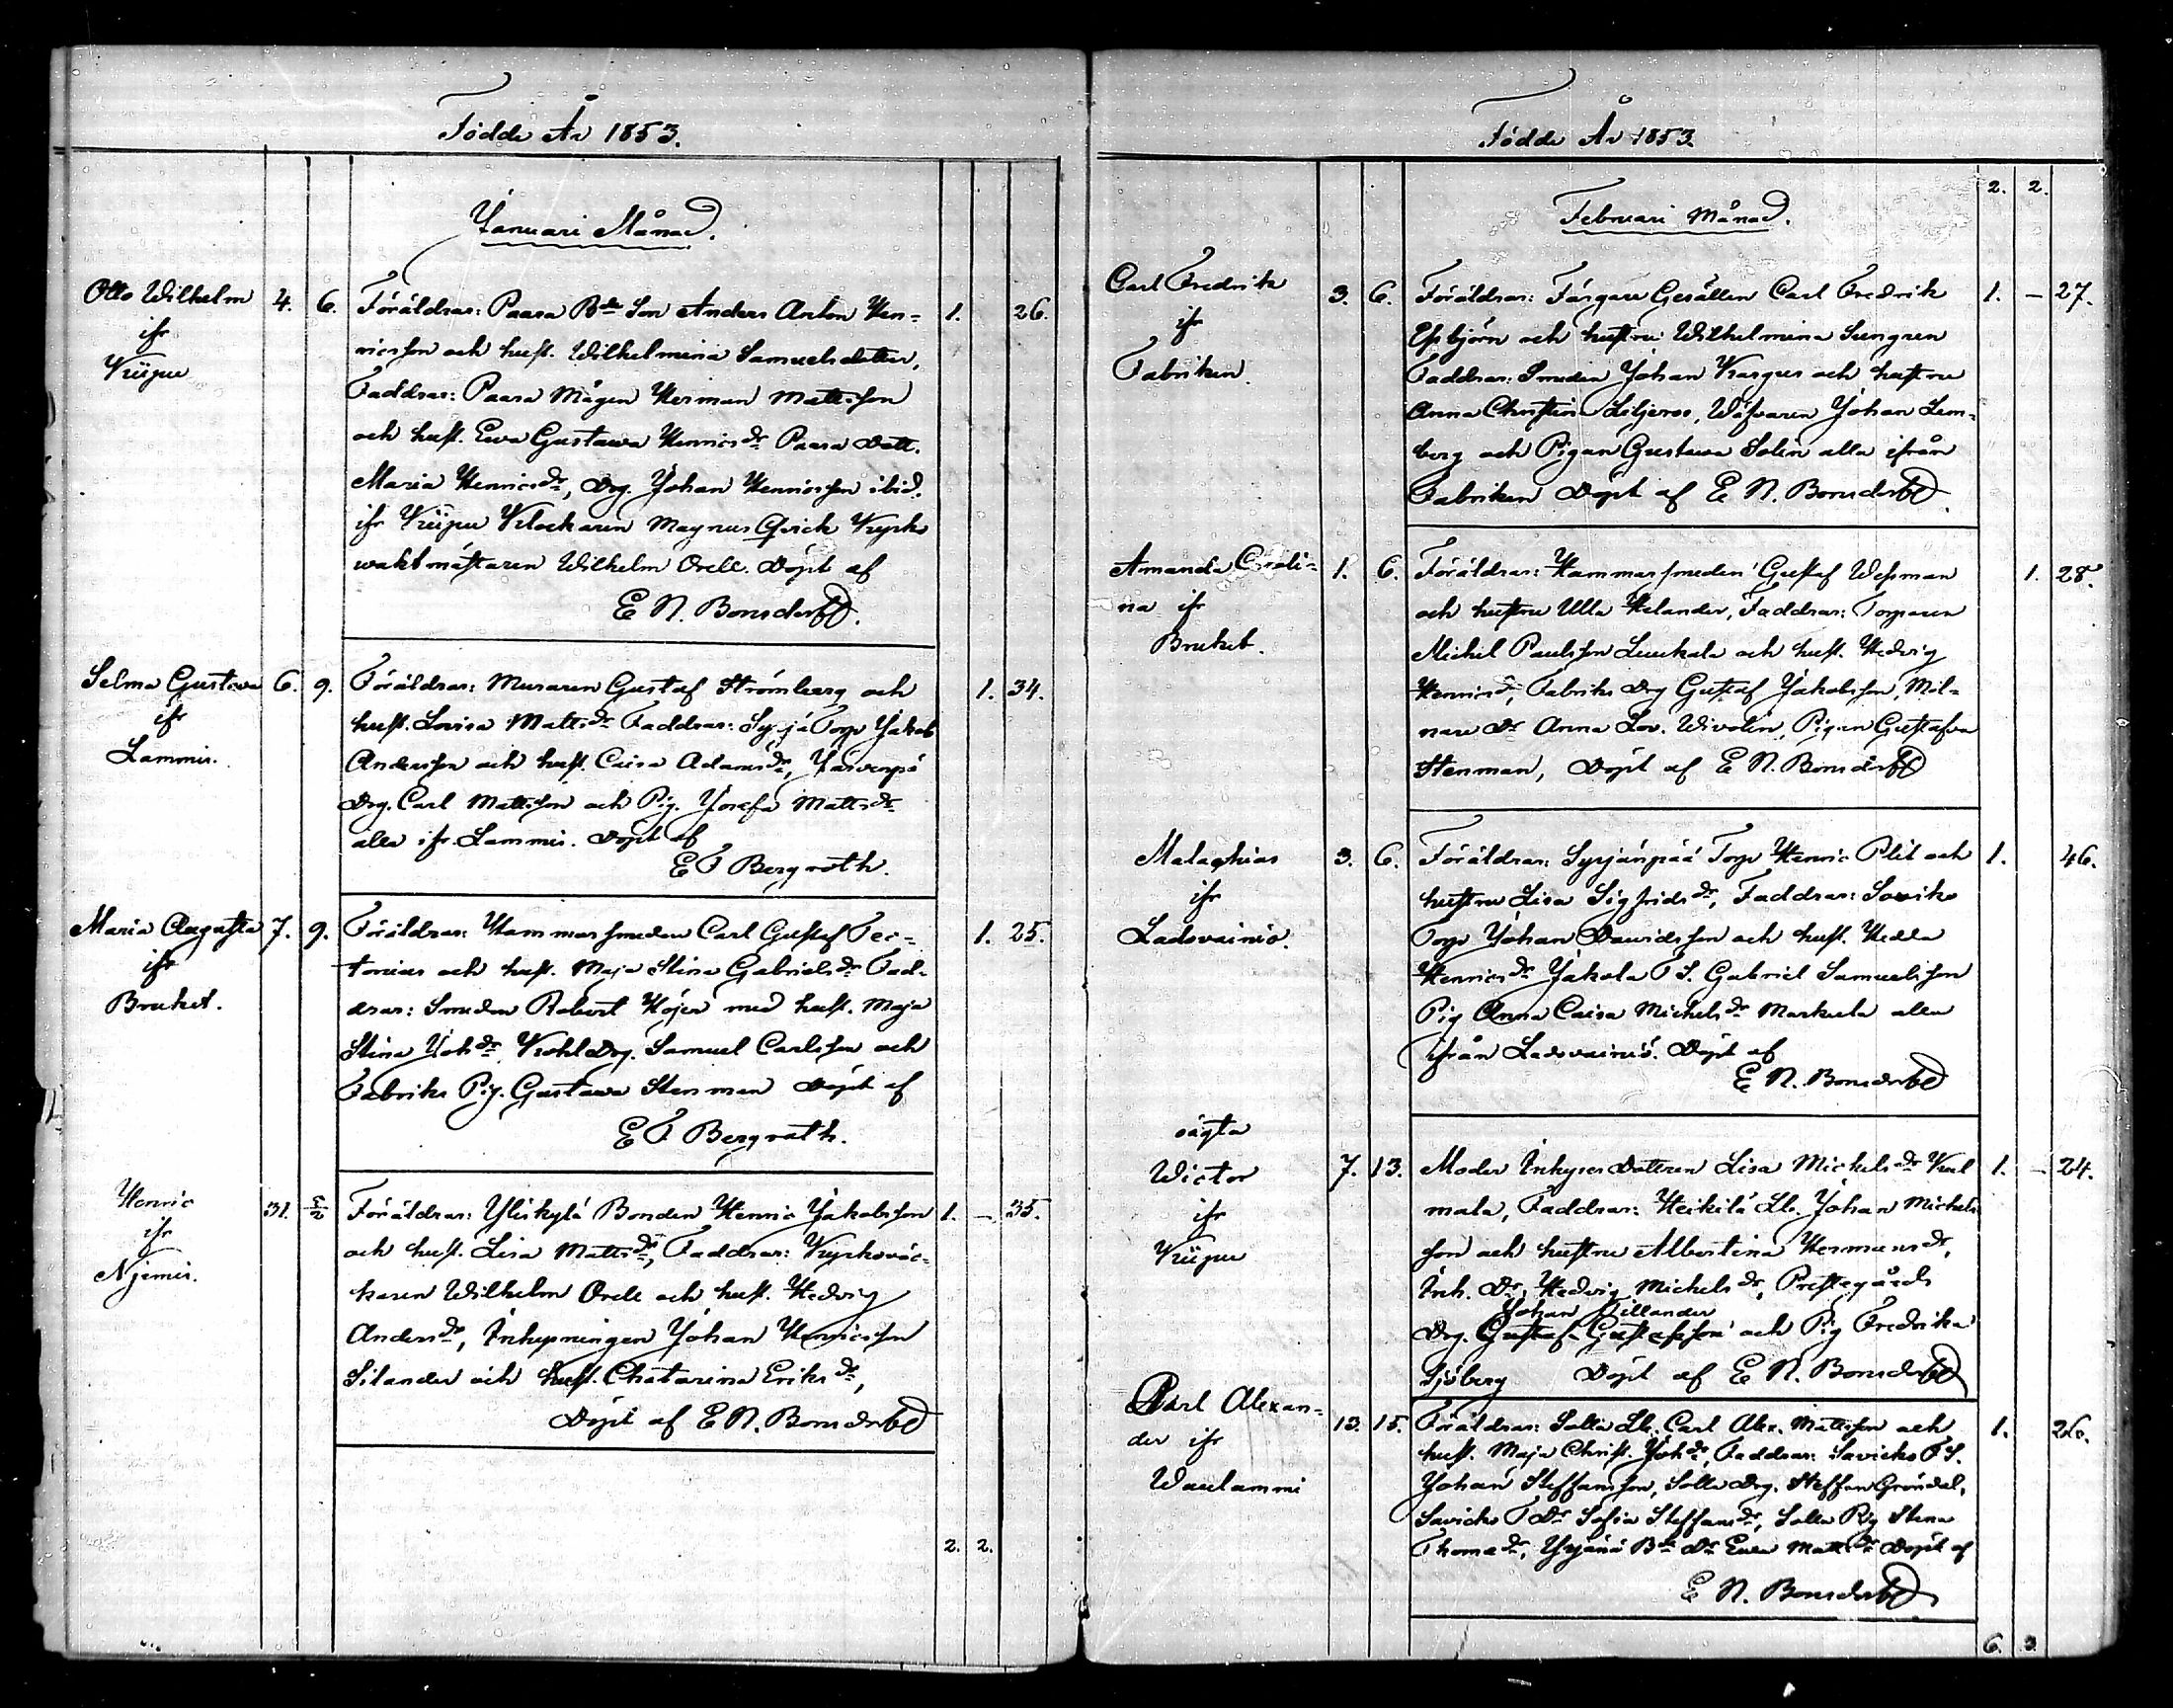 Födde År 1853.
Januari Månad.
Otto Wilhelm
ifr
Wiipu
4. 6.
Föräldrar: Paara Bde Son Anders Anton Hen-
ricsson och hust. Wilhelmina Samuelsdotter,
Faddrar: Paara Mågen Herman Mattsson
och hust. Ewa Gustawa Henricsdr Paara Dott.
Maria Henricsdr, Drg. Johan Henricsson ibid.
ifr Klockaren Magnus Qvick Kyrko
waktmästaren Wilhelm Orell. Döpt af
E N. Bonsdorff.
1. 26.
Selma Gustawa
ifr
Lammis.
6. 9.
Föräldrar: Muraren Gustaf Strömberg och
hust. Lovisa Mattsdr Faddrar: Syrjä Torp Jakob
Andersson och hust. Caisa Adamsdr, Järvenpä
Drg. Carl Mattsson och Pig. Josefa Mattsdr
alla ifr Lammis. Döpt af
E F Bergroth.
1. 34.
Maria Augusta
ifr
Bruket.
7. 9.
Föräldrar: Hammarsmeden Carl Gustaf Fer-
torius och hust. Maja Stina Gabrielsdr Fad-
drar: Smeden Robert Höjer med hust. Maja
Stina Johdr, KohlDrg. Samuel Carlsson och
Fabriks Pig. Gustawa Stenman Döpt af
E F Bergroth.
1. 25.
Henric
ifr
Njemis.
31. 6/2
Föräldrar: Yliskylä Bonden Henric Jakobsson
och hust. Lisa Mattsdr, Faddrar: Kyrkoväc-
karen Wilhelm Orell och hust. Hedvig
Andersdr, Inhysningen Johan Henricsson
Silander och hust. Chatarina Eriksdr,
Döpt af E N. Bonsdorff
1. – 35.
2. 2.
Födde År 1853.
2. 2.
Februari Månad.
Carl Fredrik
ifr
Fabriken.
3. 6.
Föräldrar: Färgare Gesällen Carl Fredrik
Esbjörn och hustru Wilhelmina Sungren
Faddrar: Smeden Johan Krasgus och hustru
Anna Christina Liljeroos, Wäfvaren Johan Lem-
berg och Pigan Gustawa Solin alla ifrån
Fabriken Döpt af E N. Bonsdorff.
1. – 27.
Amanda Caroli-
na ifr
Bruket.
1. 6.
Föräldrar: Hammarsmeden Gustaf Wessman
och hustru Ulla Helander, Faddrar: Torparen
Michel Paulsson Luukala och hust. Hedvig
Henricsdr, Fabriks Drg Gustaf Jakobsson, Möl-
nare Dr Anna Lov. Wivolin, Pigan Gustafva
Stenman, Döpt af E N. Bonsdorff
1. 28.
Malachias
ifr
Ladsvainiö.
3. 6.
Föräldrar: Syrjänpää Torp Henric Plit och
hustru Lisa Sigfridsdr, Faddrar: Saviko
Torp Johan Davidsson och hust. Hedda
Henricsdr Jakola T S. Gabriel Samuelsson
Pig Anna Caisa Michelsdr Markula alla
ifrån Ladsvainiö. Döpt af
E N. Bonsdorff
1. 46.
oägta
Wictor
ifr
Wiipu
7. 13.
Moder Inhyses Dotteren Lisa Michelsdr Kul
mala, Faddrar: Heikilä Lb. Johan Michels
son och hustru Albertina Hermansdr,
Inh. Dr, Hedvig Michelsdr, Prestegårds
Johan Sillander
Drg. Gustaf Gustafsson och Pig Fredrika
Sjöberg Döpt af E N. Bonsdorff
1. – 24.
Karl Alexan-
der ifr
Waulammi
13. 15.
Föräldrar: Solla Lb. Carl Alex. Mattsson och
hust. Maja Christ. Johdr, Faddrar: Savicko T S.
Johan Steffansson, Solla Drg. Steffan Gröndal,
Savicko T Dr Sofia Steffansdr, Solla Pig Stina
Thomadr, Yrjänä Bde Dr Ewa Mattsdr Döpt af
E N. Bonsdorff
1. 26.
6. 3.